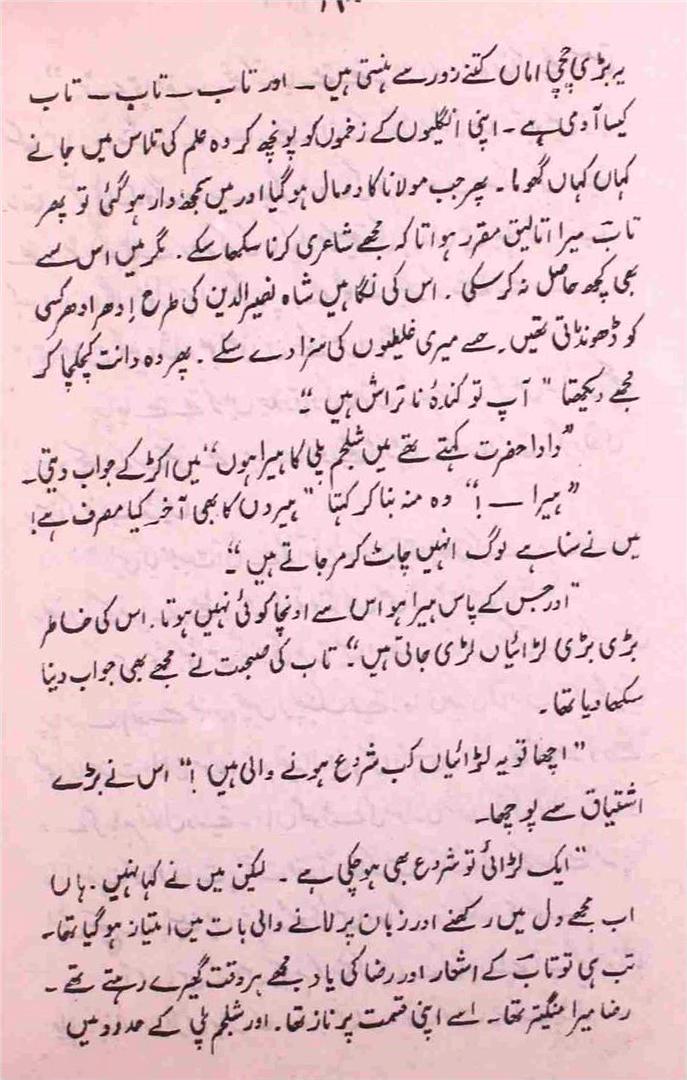 یہ بڑی چچی اماں کتنے زور سے ہنستی ہیں ـ اور تاب ــ تاب ــ تاب
کیسا آدمی ہے ـ اپنی انگلیوں کے زخموں کو پونچھ کر وہ علم کی تلاس میں جانے
کہاں کہاں گھوما ـ پھر جب مولانا کا وصال ہو گیا اور میں سمجھ دار ہو گئی تو پھر
تاب میرا اتالیق مقرر ہوا تاکہ مجھے شاعری کرنا سکھا سکے ۔ مگر میں اس سے
بھی کچھ حاصل نہ کر سکی ۔ اس کی نگاہیں شاہ نصیرالدین کی طرح اِدھر ادھر کسی
کو ڈھونڈتی تھیں ۔ جسے میری غلیطیوں کی سزا دے سکے ۔ پھر وہ دانت کچکچا کر
مجھے دیکھتا " آپ تو کندۂ نا تراش ہیں "ـ
"دادا حضرت کہتے تھے میں شلجم پلی کا ہیرا ہوں" میں اکڑ کے جواب دیتی ـ
"ہیرا ــ !" وہ منہ بنا کر کہتا "ہیروں کا بھی آخر کیا مصرف ہے!
میں نے سنا ہے لوگ انہیں چاٹ کر مر جاتے ہیں "ـ
"اور جس کے پاس ہیرا ہو اس سے اونچا کوئی نہیں ہوتا ۔ اس کی خاطر
بڑی بڑی لڑائیاں لڑی جاتی ہیں "ـ تاب کی صحبت نے مجھے بھی جواب دینا
سکھا دیا تھا ۔
"اچھا تو یہ لڑائیاں کب شروع ہونے والی ہیں !" اس نے بڑے
اشتیاق سے پوچھا ـ
"ایک لڑائی تو شروع بھی ہو چکی ہے ۔ لیکن میں نے کہا نہیں ۔ ہاں
اب مجھے دل میں رکھنے اور زبان پر لانے والی بات میں امتیاز ہو گیا تھا ـ
تب ہی تو تاب کے اشعار اور رضا کی یاد مجھے ہر وقت گھیرے رہتے تھے ـ
رضا میرا منگیتر تھا ـ اسے اپنی قسمت پر ناز تھا ۔ اور شلجم پلی کے حدود میں